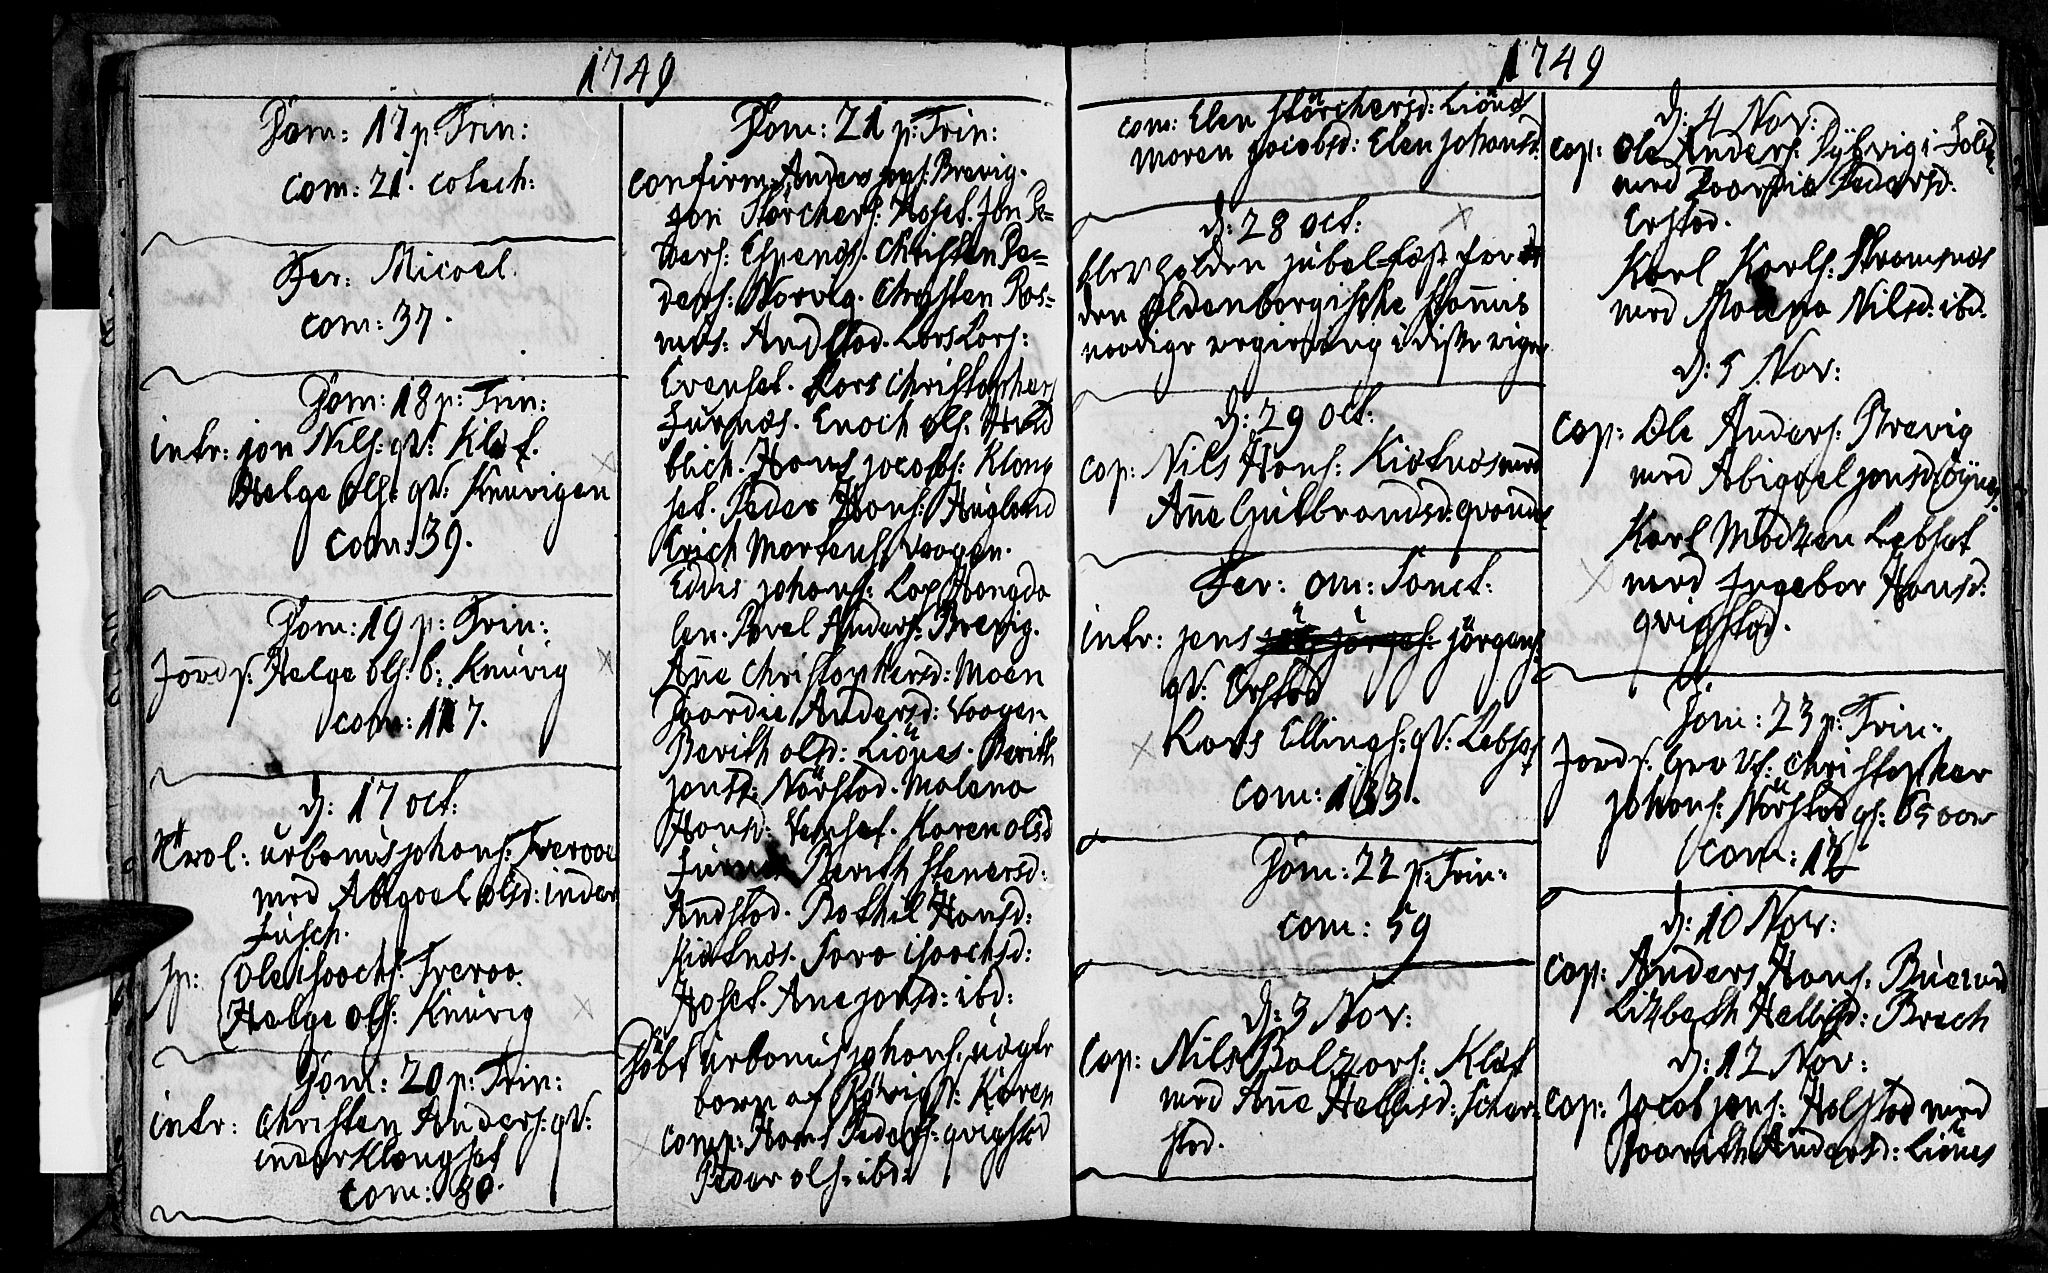 1749
Dom: 17 p: Trin:
Com: 21. catech:
Fer: Micael.
Com: 37.
Dom: 18 p: Trin:
intr: jon Nils: qV: Kläf.
Helge Ols: qV: Knüvigen
Com: 39.
Dom: 19 p: Trin:
Jordf: Helge Ols: b: Knüvig
Com: 117.
d: 17 oct:
Trol: ürbanüs johans: Treroa
med Abigael Olsd: inder
füsch.
sp: Ole Isaachs: Treroa
Helge Ols: Knüvig
Dom: 20 p: Trin:
intr: Christen Anders: qV:
inder Klongset
Com: 80.
Dom: 21 p: Trin:
Confirm: Anders jons: Brevig.
jon Störchers: Hoset. Jon Pe=
ders: Espenæs. Christen Pe=
ders: Norvig. Christen Ras=
mus: Andstad. Lars Lars:
Evenset. Lars Christophers
Fürnæs. Enoch Ols:
blich. Hans jacobs: Klong
set. Peder Hans: Högland
Erich Martens: Vaagen.
Eddis johans: Lap Hongda
len. Povel Anders: Brevig.
Anne Christophersd: Moen
Paardie Andersd: Vaagen
Berith Olsd: Liönes. Berith
jonsd: Nörstad. Malena
Hansd: Venset. Karen Olsd
Fürnes Berith Stenersd:
Andstad. Bothil Hansd:
Kiætnæs. Fara isaachsd:
Hoset. Ane jonsd: ibd:
Döbt ürbanüs johans: üægte
barn af Rövig M: Karen
Comp: Hans Peders: qvigstad
Peder Ols: ibd:
1749
com: Elen Störchersd: Liönæs
Maren jacobsd: Elen johansd:
d: 28 oct:
blev holden jubel=fæst for
den Oldenborgische Stammis
naadige regiering i disse riger
d: 29 oct:
Cop: Nils Hans: Kiætnæs med
Anne Gulbrandsd: qvanaas
Fer: om: Sanct:
intr: jens jörgens:
qV: Erstad
Lars Ellings: qV: Lebset
Com: 133.
Dom: 22 p: Trin:
Com: 59
d: 3 Nov:
Cop: Nils Balzars: Klæt
med Anne Hellisd: Schar:
stad.
d: 4 Nov:
Cop: Ole Anders: Dybvig i Folde
med Paardie Pedersd:
Erstad.
Karl Karls: Stromsnæs
med Malena Nilsd: ibd.
d: 5 Nov:
Cop: Ole Anders: Brevig
med Abigael jonsd: öynes.
Karl Madzen Lebset
med Ingebor Hansd:
qvigstad.
Dom: 23 p: Trin:
Jordf: Christopher
johans: Nörstad gl: 65 aar
Com: 12
d: 10 Nov:
Cop: Anders Hans: Büerud
Lizbeth Hellisd: Brech
d: 12 Nov:
Cop: jacob jens: Halstad med
Paarith Andersd: Liönes